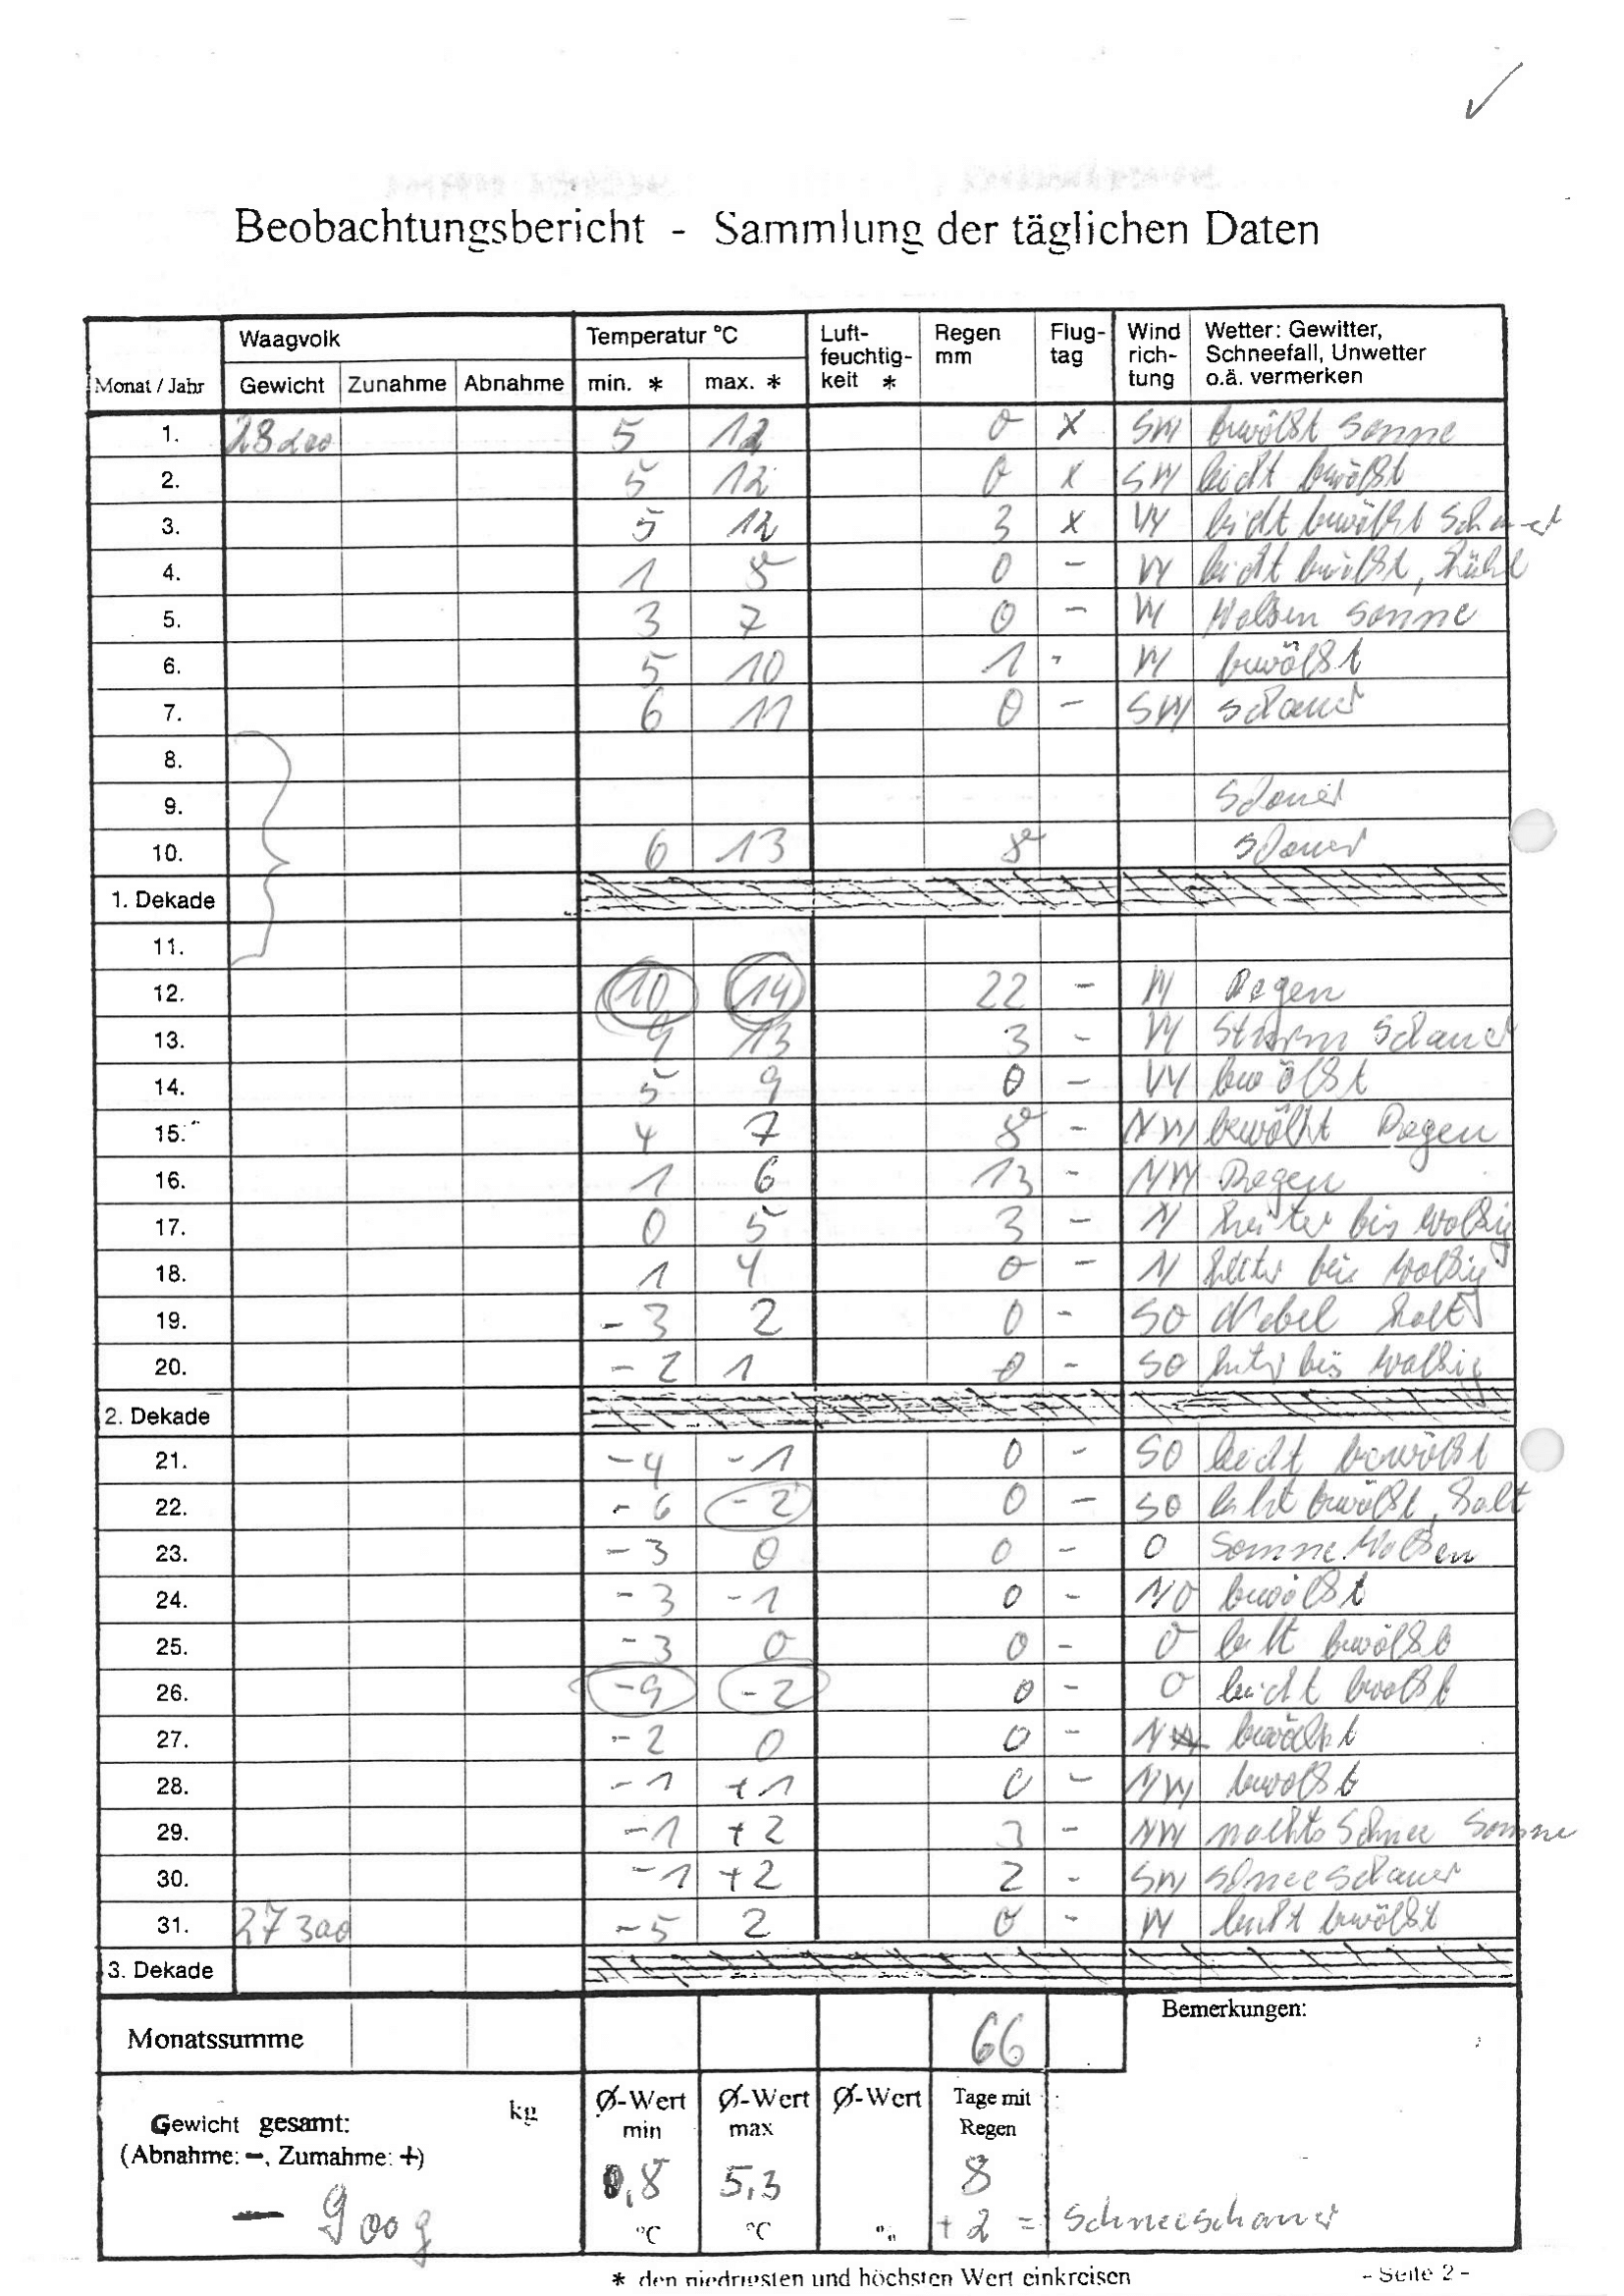 Beobachtungsbericht - Sammlung der täglichen Daten
Monat / Jahr Waagvolk Temperatur °C Luft-feuchtig-keit * Regen mm Flug-tag Wind rich-tung Wetter: Gewitter, Schneefall, Unwetter o.ä. vermerken
Gewicht Zunahme Abnahme min. * max. *
1. 28200 5 12 0 x SW bewölkt Sonne
2. 5 12 0 x SW leicht bewölkt
3. 5 12 3 x W leicht bewölkt Schauer
4. 1 8 0 - W leicht bewölkt, kühl
5. 3 7 0 - W Wolken Sonne
6. 5 10 1 - W bewölkt
7. 6 11 0 - SW Schauer
8.
9. Schauer
10. 6 13 8 Schauer
1. Dekade
11.
12. 10 14 22 - W Regen
13. 9 13 3 - W Sturm Schauer
14. 5 9 0 - W bewölkt
15. 4 7 8 - NW bewölkt Regen
16. 1 6 13 - NW Regen
17. 0 5 3 - N heiter bis wolkig
18. 1 4 0 - N heiter bis wolkig
19. -3 2 0 - SO Nebel kalt
20. -2 1 0 - SO heiter bis wolkig
2. Dekade
21. -4 -1 0 - SO leicht bewölkt
22. -6 -2 0 - SO leicht bewölkt, kalt
23. -3 0 0 - O Sonne Wolken
24. -3 -1 0 - NO bewölkt
25. -3 0 0 - O leicht bewölkt
26. -9 -2 0 - O leicht bewölkt
27. -2 0 0 - N bewölkt
28. -1 +1 0 - NW bewölkt
29. -1 +2 3 - NW nachts Schnee Sonne
30. -1 +2 2 - SW Schneeschauer
31. 27300 -5 2 0 - W leicht bewölkt
3. Dekade
Monatssumme 66 Bemerkungen:
Gewicht gesamt: kg Ø-Wert min Ø-Wert max Ø-Wert Tage mit Regen
(Abnahme: -, Zumahme: +)
- 900 g 0,8 °C 5,3 °C % 8
+ 2 = Schneeschauer
* den niedrigsten und höchsten Wert einkreisen - Seite 2 -